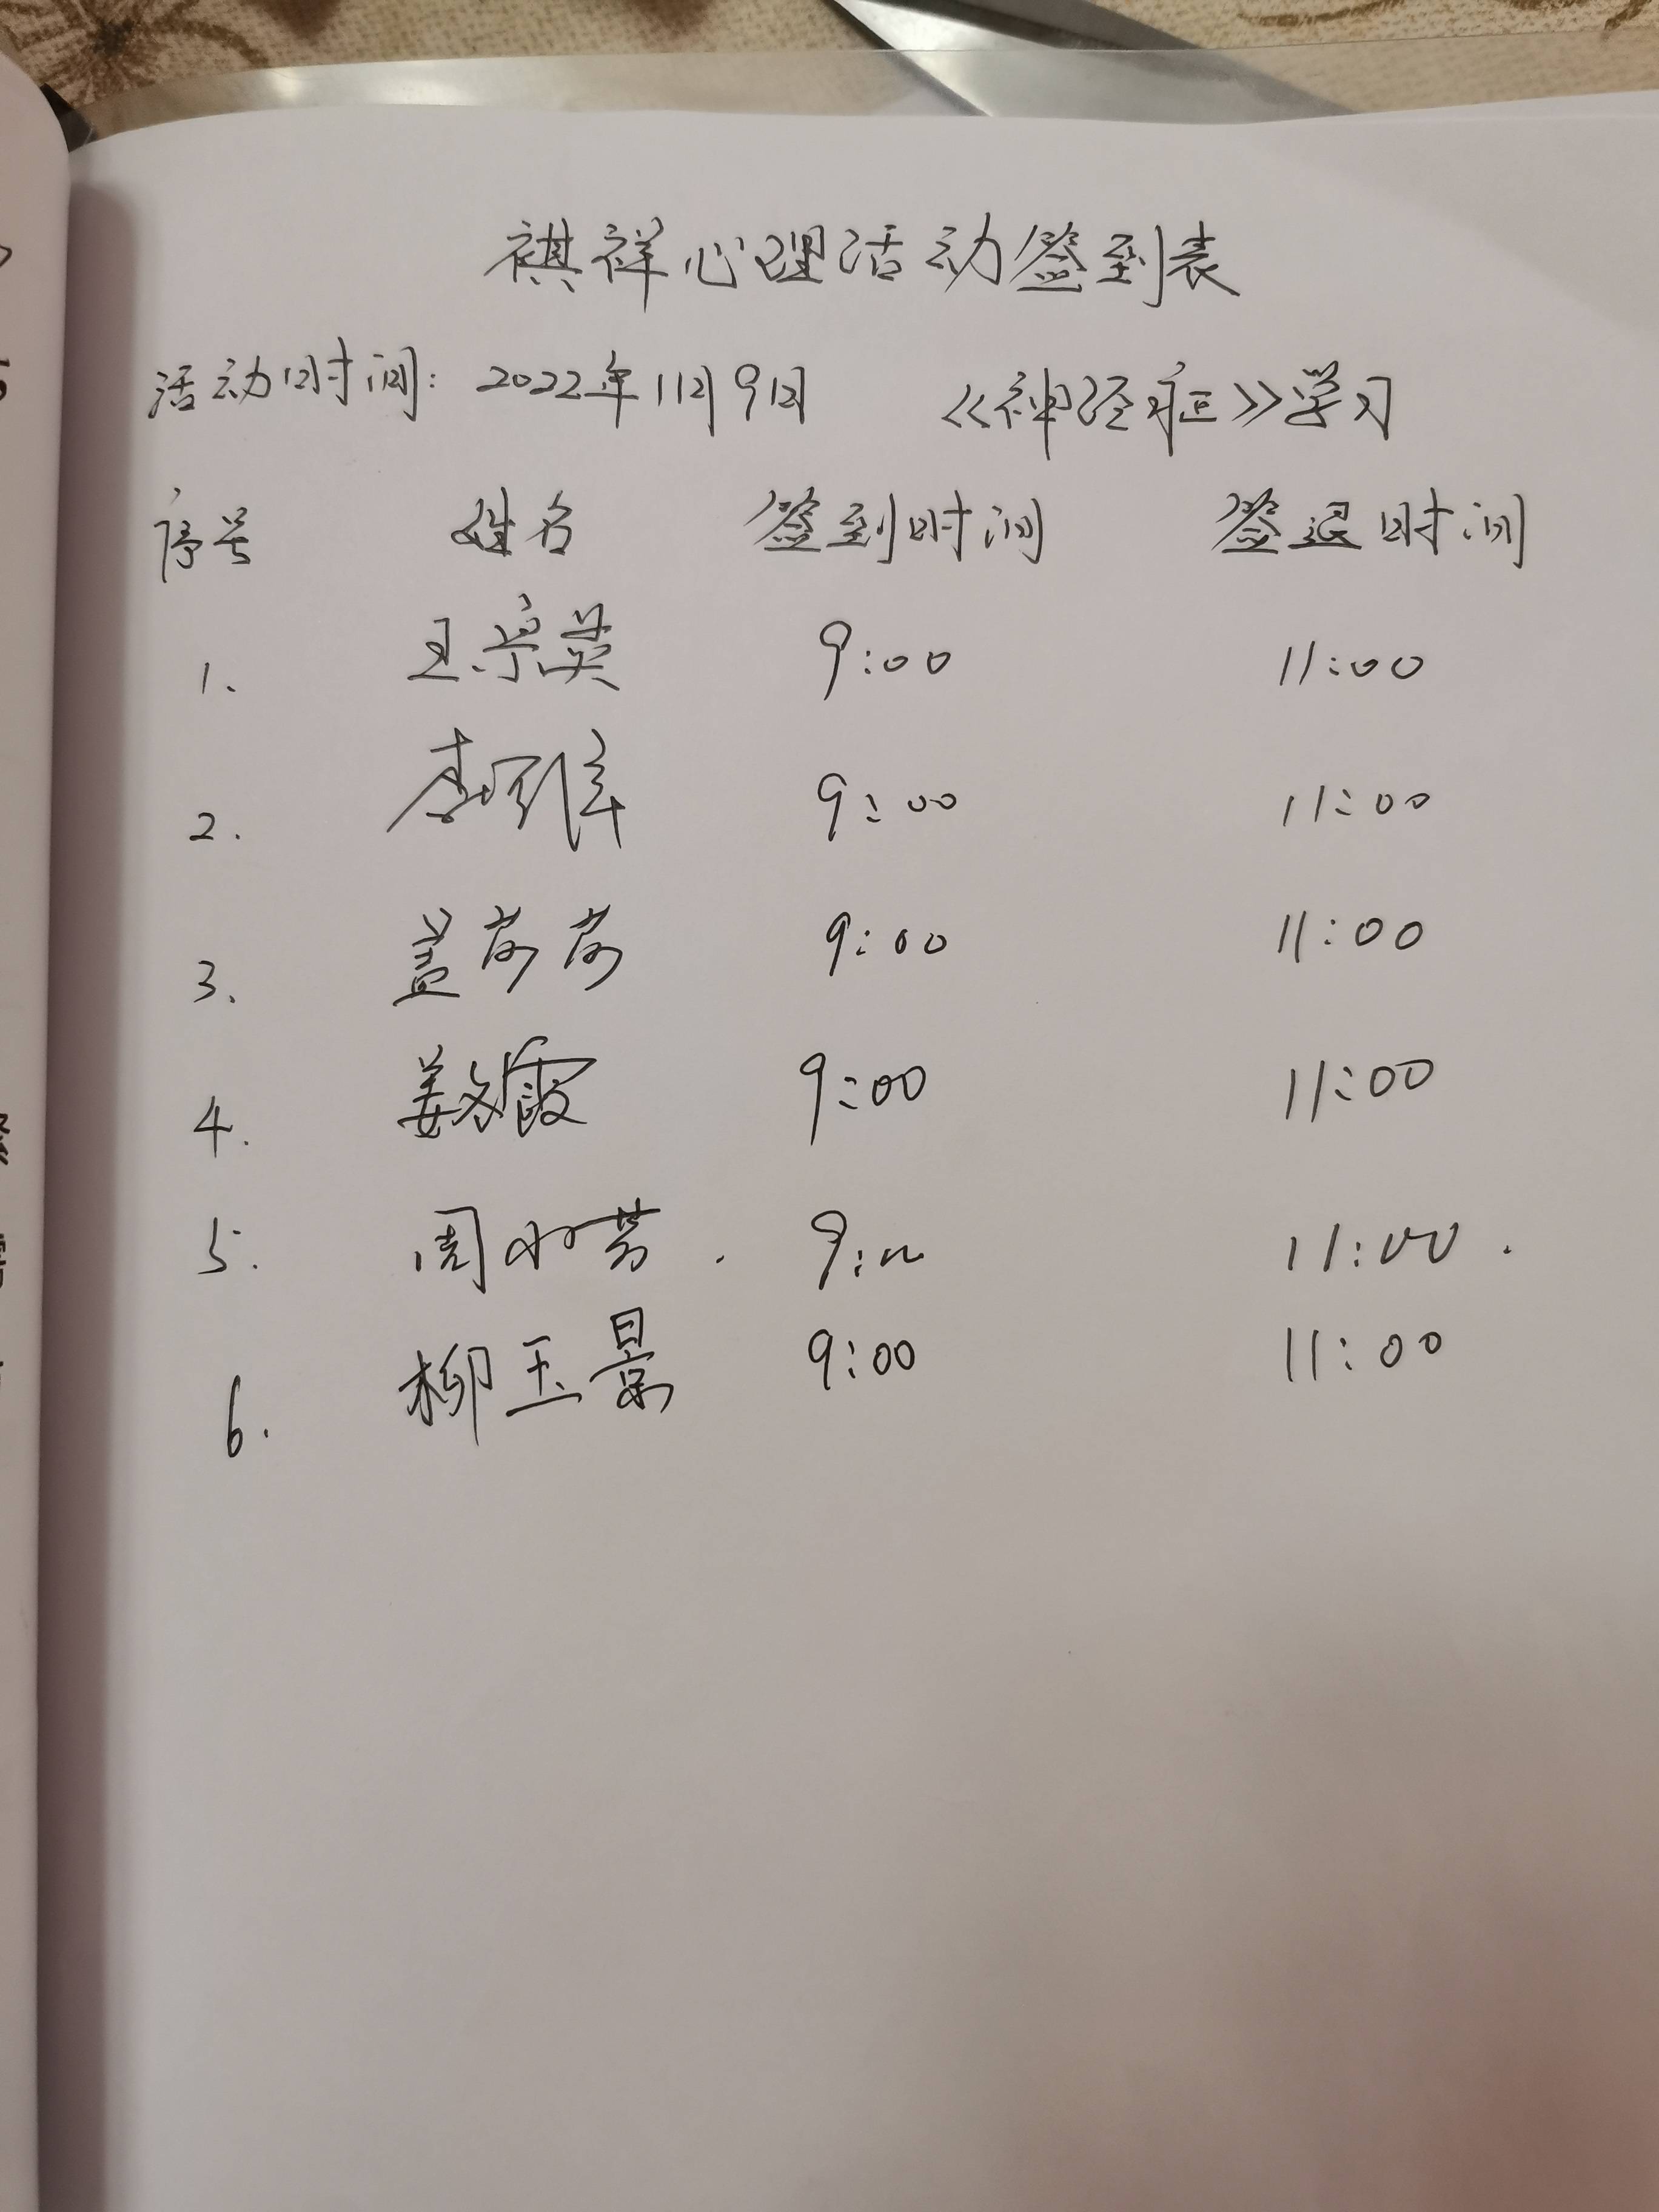 祺祥心理活动签到表
活动时间：2022年11月9日 《神经症》学习
序号 姓名 签到时间 签退时间
1、 王宗英 9:00 11:00
2. 李 9:00 11:00
3、 盖荷荷 9:00 11:00
4. 姜 霞 9:00 11:00
5. 周小芳. 9:00 11:00.
6. 柳玉景 9:00 11:00